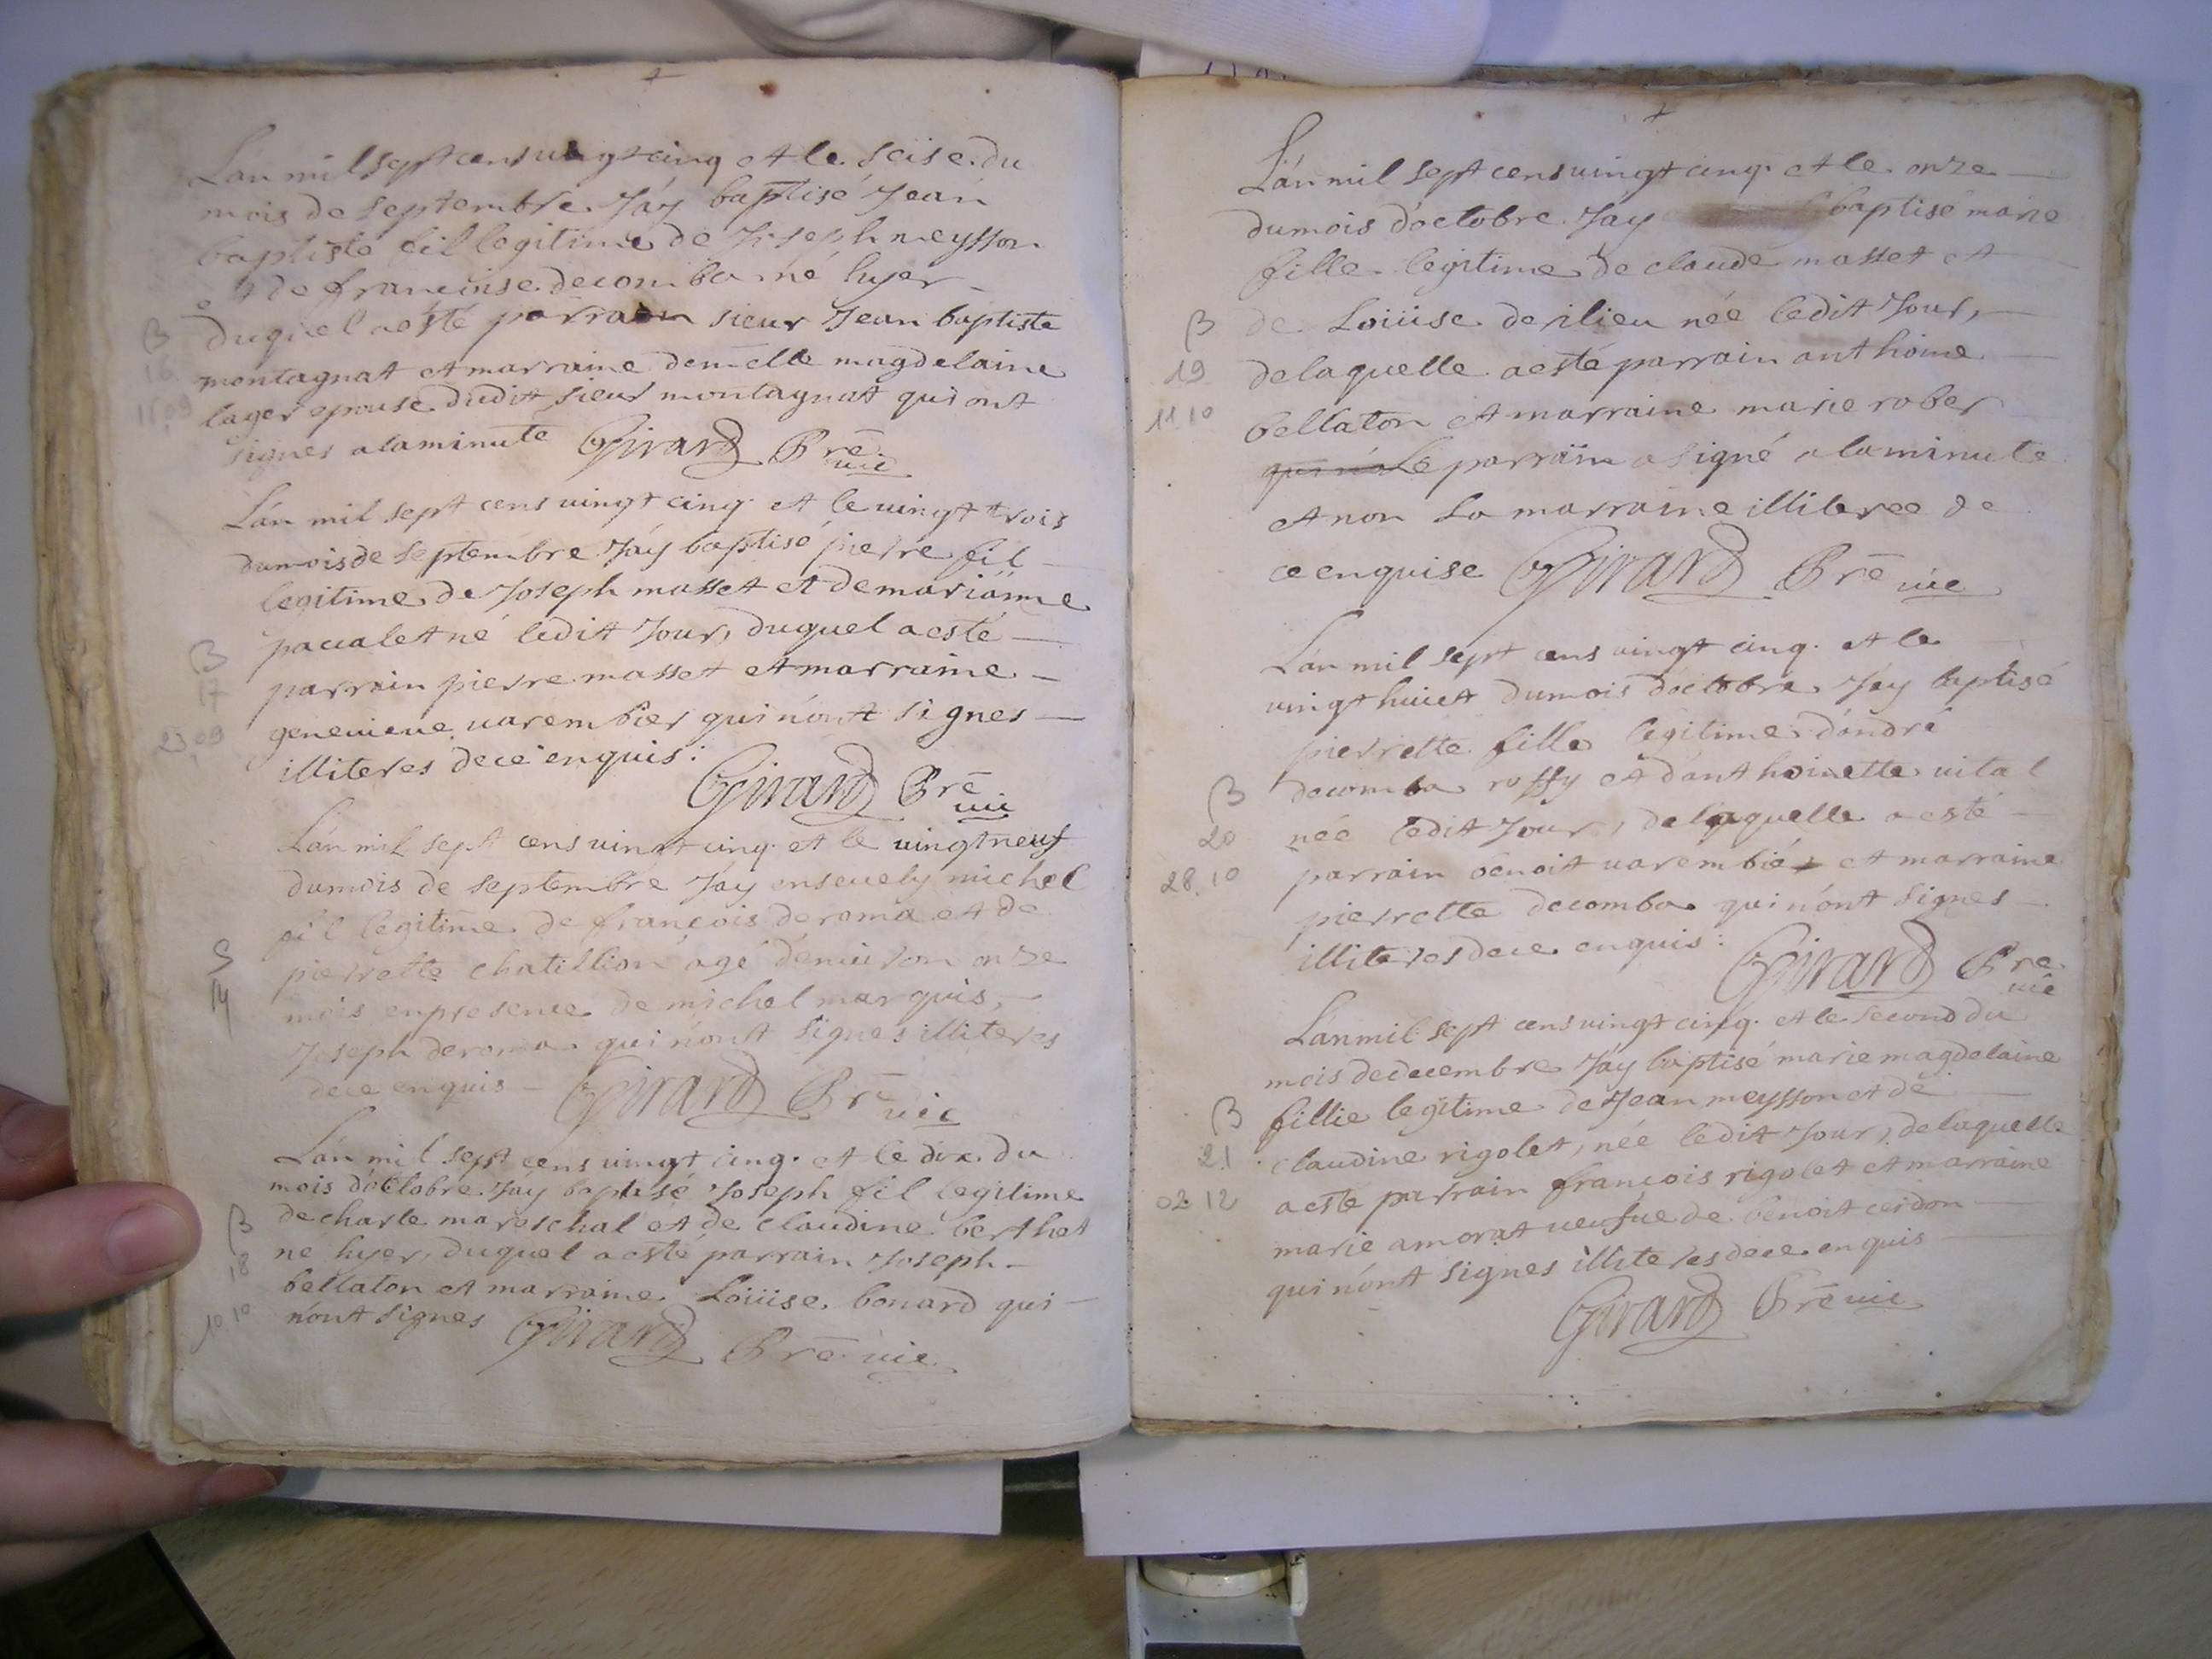 L'an mil sept cens vingt cinq et le seise du
mois de septembre J'ay baptisé Jean
baptiste fil legitime de Joseph meysson
et de francoise decomba né hyer
duquel a esté parrain sieur Jean baptiste
montagnat et marraine demelle magdelaine
lager epouse dudit sieur montagnat qui ont
signes a la minute Girard Pre
vic
B
16
16.09
L'an mil sept cens vingt cinq et le vingt trois
du mois de septembre J'ay baptisé pierre fil
legitime de Joseph masset et de marianne
pacalet né ledit Jour, duquel a esté
parrain pierre masset et marraine
genevieve varembier qui n'ont signes
illiteres de ce enquis :
Girard Pre
vic
B
17
23.09
L'an mil sept cens vingt cinq et le vingt neuf
du mois de septembre J'ay ensevely michel
fil legitime de francois deroma et de
pierrette chatillion agé d'environ onze
mois en presence de michel marquis,
Joseph deroma qui n'ont signes illiteres
de ce enquis Girard Pre vic
S
14
L'an mil sept cens vingt cinq et le dix du
mois d'octobre J'ay baptisé Joseph fil legitime
de charle mareschal et de claudine berthet
né hyer, duquel a esté parrain Joseph
bellaton et marraine Loüise bonard qui
n'ont signes Girard Pre vic
B
18
10.10
L'an mil sept cens vingt cinq et le onze
du mois d'octobre J'ay baptisé marie
fille legitime de claude masset et
de Loüise de rilieu née ledit Jour,
de laquelle a esté parrain anthoine
bellaton et marraine marie rober
le parrain a signé a la minute
et non la marraine illiteree de
ce enquise Girard Pre vic
B
19
11.10
L'an mil sept cens vingt cinq et le
vingt huict du mois d'octobre J'ay baptisé
pierrette fille legitime d'andré
decomba roffy et d'anthoinette vital
née ledit Jour, de laquelle a esté
parrain benoit varembié et marraine
pierrette decomba qui n'ont signes
illiteres de ce enquis :
Girard Pre
vic
B
20
28.10
L'an mil sept cens vingt cinq et le second du
mois de decembre J'ay baptisé marie magdelaine
fillie legitime de Jean meysson et de
claudine rigolet, née ledit Jour, de laquelle
a esté parrain francois rigolet et marraine
marie amorat veufve de benoit ceidon
qui n'ont signes illiteres de ce enquis
Girard Pre vic
B
21
02.12